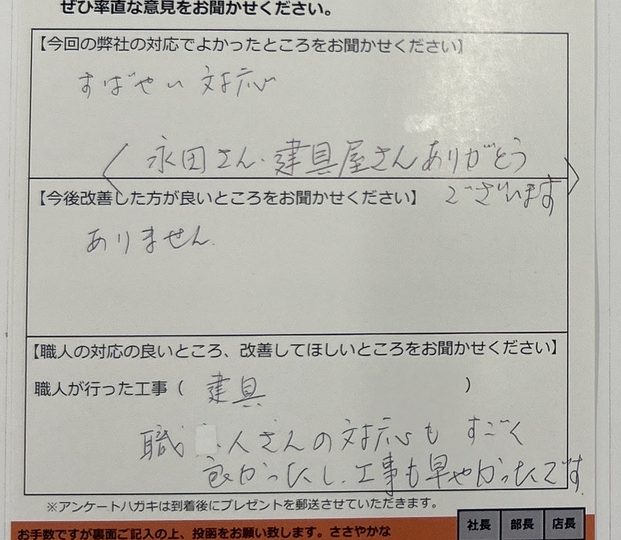 ぜひ率直な意見をお聞かせください。
【今回の弊社の対応でよかったところをお聞かせください】
すばやい対応
〈永田さん、建具屋さんありがとう
ございます〉
【今後改善した方が良いところをお聞かせください】
ありません
【職人の対応の良いところ、改善してほしいところをお聞かせください】
職人が行った工事（ 建具 ）
職人さんの対応もすごく
良かったし、工事も早やかったです。
※アンケートハガキは到着後にプレゼントを郵送させていただきます。
お手数ですが裏面ご記入の上、投函をお願い致します。ささやかな
社長 部長 店長